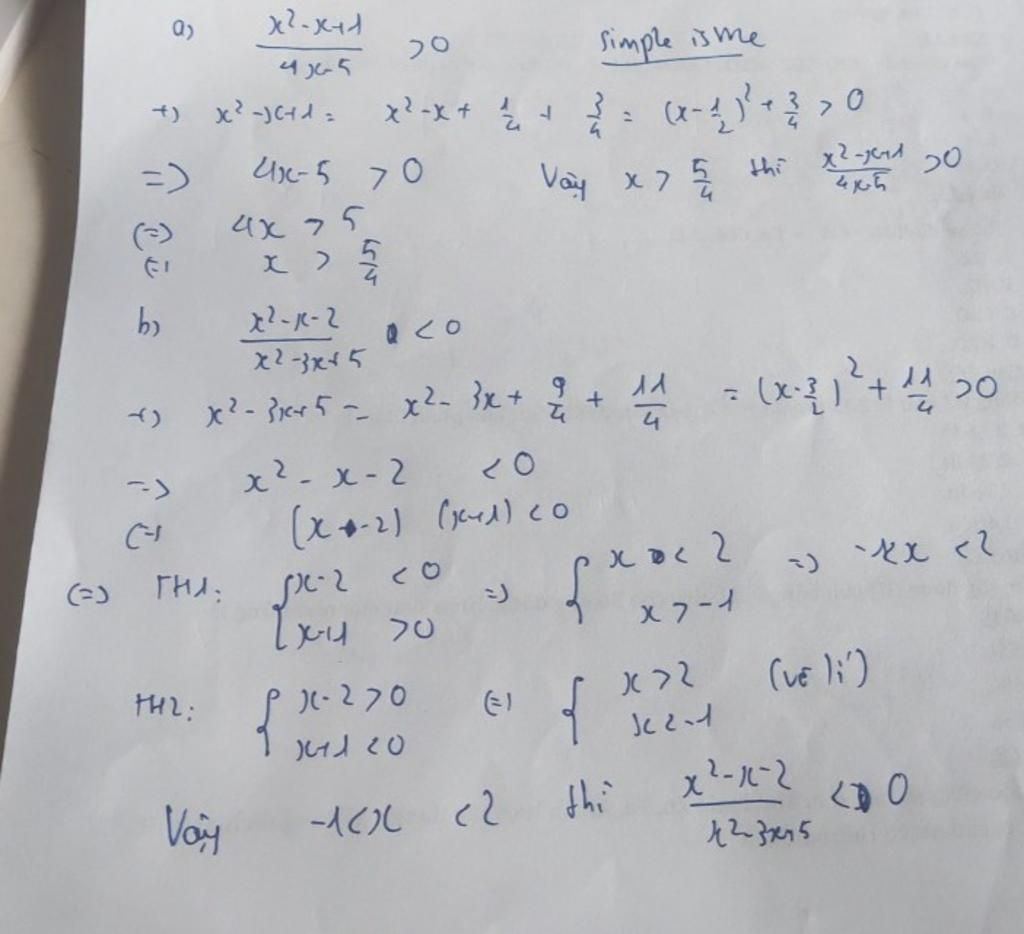 a) (x²-x+1)/(4x-5) > 0 simple is me
+) x²-x+1 = x²-x+ 1/4 + 3/4 = (x-1/2)² + 3/4 > 0
=> 4x-5 > 0 Vậy x > 5/4 thì (x²-x+1)/(4x-5) > 0
(=) 4x > 5
(=) x > 5/4
b) (x²-x-2)/(x²-3x+5) < 0
+) x²-3x+5 = x²-3x+ 9/4 + 11/4 = (x-3/2)² + 11/4 > 0
=> x²-x-2 < 0
(=) (x-2) (x+1) < 0
(=) TH1: { x-2 < 0 ; x+1 > 0 => { x < 2 ; x > -1 => -1<x < 2
TH2: { x-2 > 0 ; x+1 < 0 (=) { x > 2 ; x < -1 (vô lí)
Vậy -1<x < 2 thì (x²-x-2)/(x²-3x+5) < 0